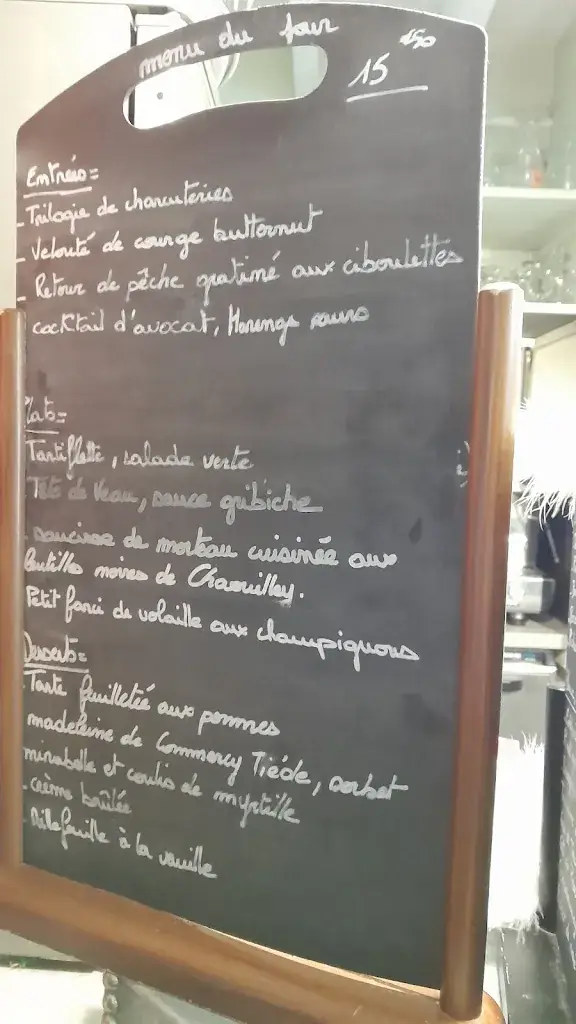 menu du jour
15 €50
Entrées =
- Trilogie de charcuteries
- Velouté de courge butternut
- Retour de pêche gratiné aux ciboulettes
cocktail d'avocat, Harengs saurs
Plats =
Tartiflette, salade verte
Tête de Veau, sauce gribiche
- saucisse de morteau cuisinée aux
lentilles noires de Chaouilley.
Petit farci de volaille aux champignons
Desserts =
- Tarte feuilletée aux pommes
madeleine de Commercy Tiède, sorbet
mirabelle et coulis de myrtille
- crème brûlée
- Millefeuille à la vanille